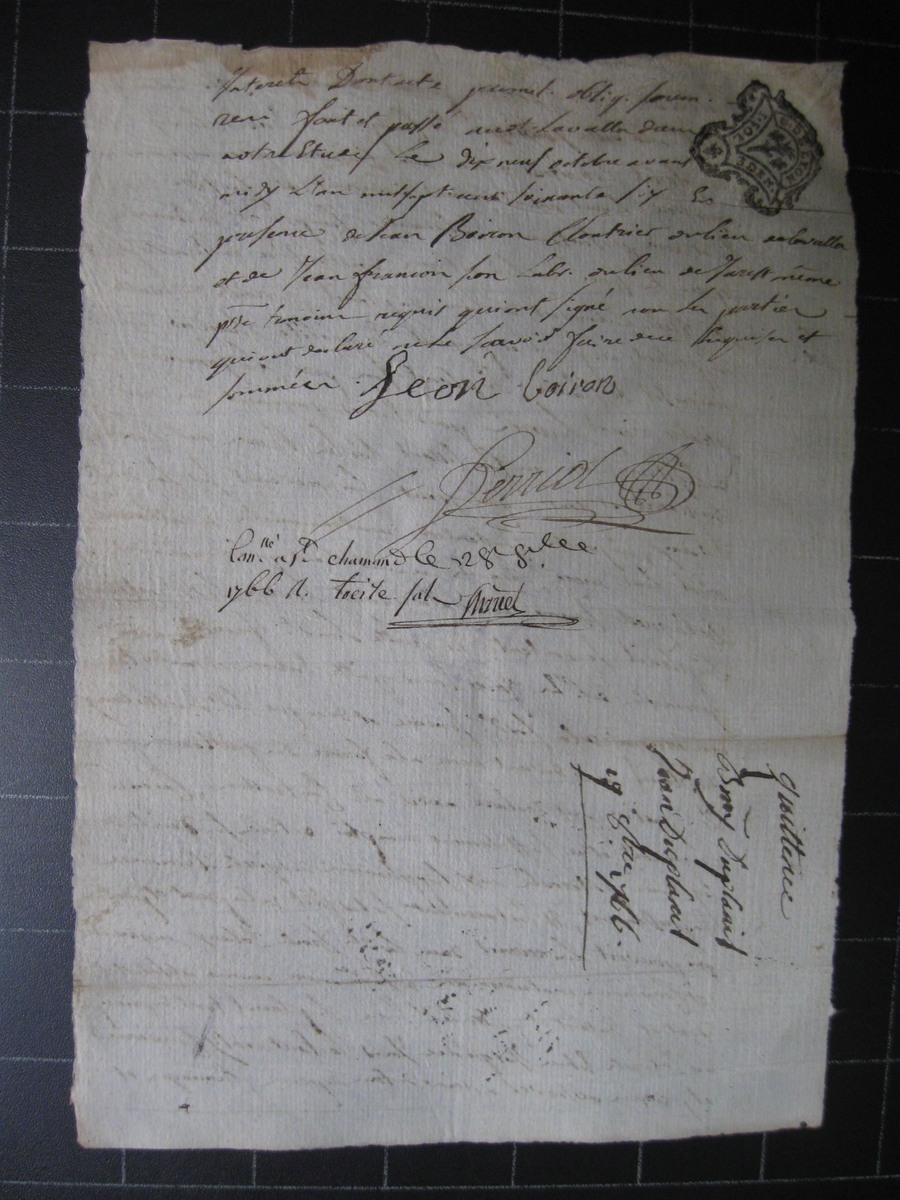 Interets Dont acte promet. oblig. soum.
ren. fait et passé au dt Lavalla dans
notre Etude Le dix neuf octobre avant
midy L'an mil sept cent soixante six En
presence de Jean Boiron Cloutrier du lieu de lavalla
et de Jean francois son Labr. du lieu de même
pse temoins requis qui ont signé non les parties
qui ont declaré ne le savoir faire de ce Enquises et
sommées. Jean boiron
Perriol
Con.lé a St chamond le 28e 8bre
1766 R. treize sols
quittance
Duplomb
Jean Duplomb
19 8bre 1766.